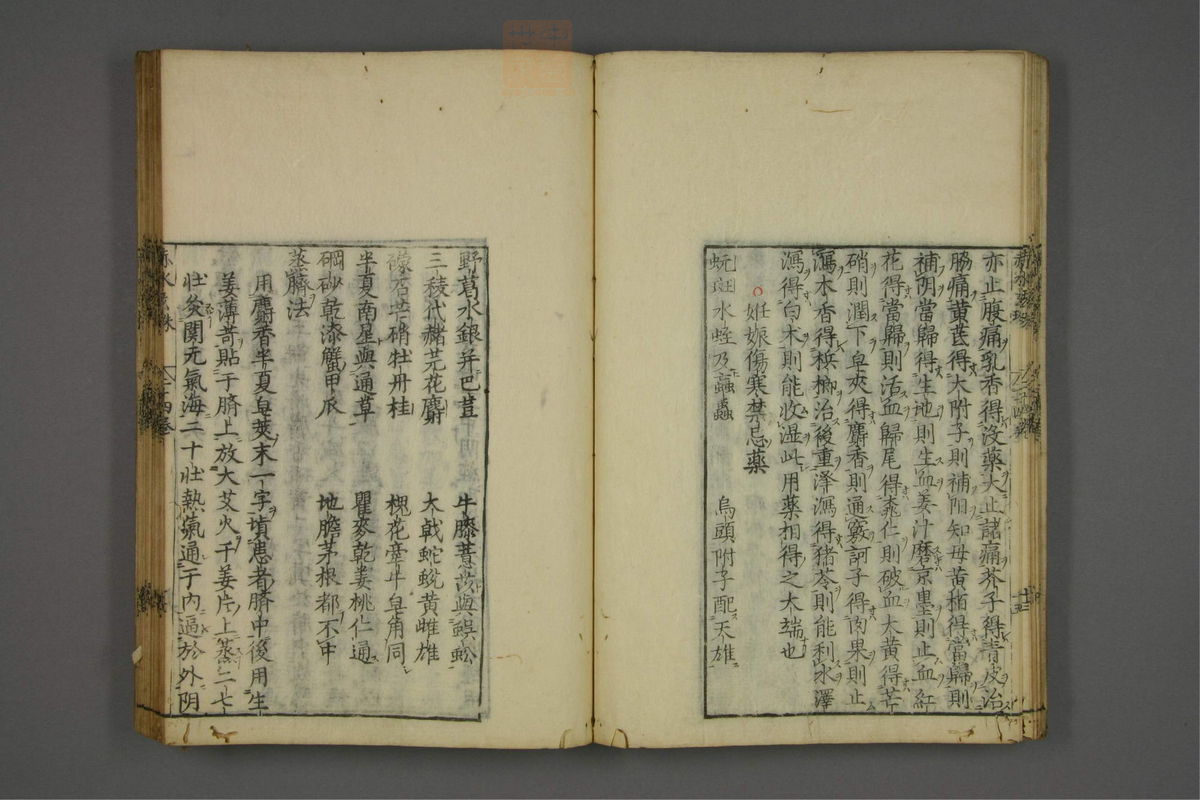 亦止腹痛乳香得没藥大止諸痛芥子得青皮治
脇痛黄芪得大附子則補阳知母黄栢得當歸則
補阴當歸得生地則生血姜汁磨京墨則止血紅
花得當歸則活血歸尾得桃仁則破血大黄得芒
硝則潤下皂莢得麝香則通竅訶子得肉果則止
瀉木香得梹榔治後重澤瀉得猪苓則能利水澤
瀉得白术則能收湿此用藥相得之大端也
妊娠傷寒禁忌藥
蚖斑水蛭及蝱蟲 烏頭附子配天雄
野葛水銀并巴荳 牛膝薏苡與蜈蚣
三稜代赭芫花麝 大戟蛇蛻黄雌雄
礞石芒硝牡丹桂 槐花牽牛皂角同
半夏南星與通草 瞿麥乾姜桃仁通
硇砂乾漆蟹甲爪 地膽茅根都不中
蒸臍法
用麝香半夏皂莢末一字填患者臍中後用生
姜薄片貼于臍上放大艾火于姜片上蒸二七
壮灸関元氣海二十壮熱氣通于内逼於外阴